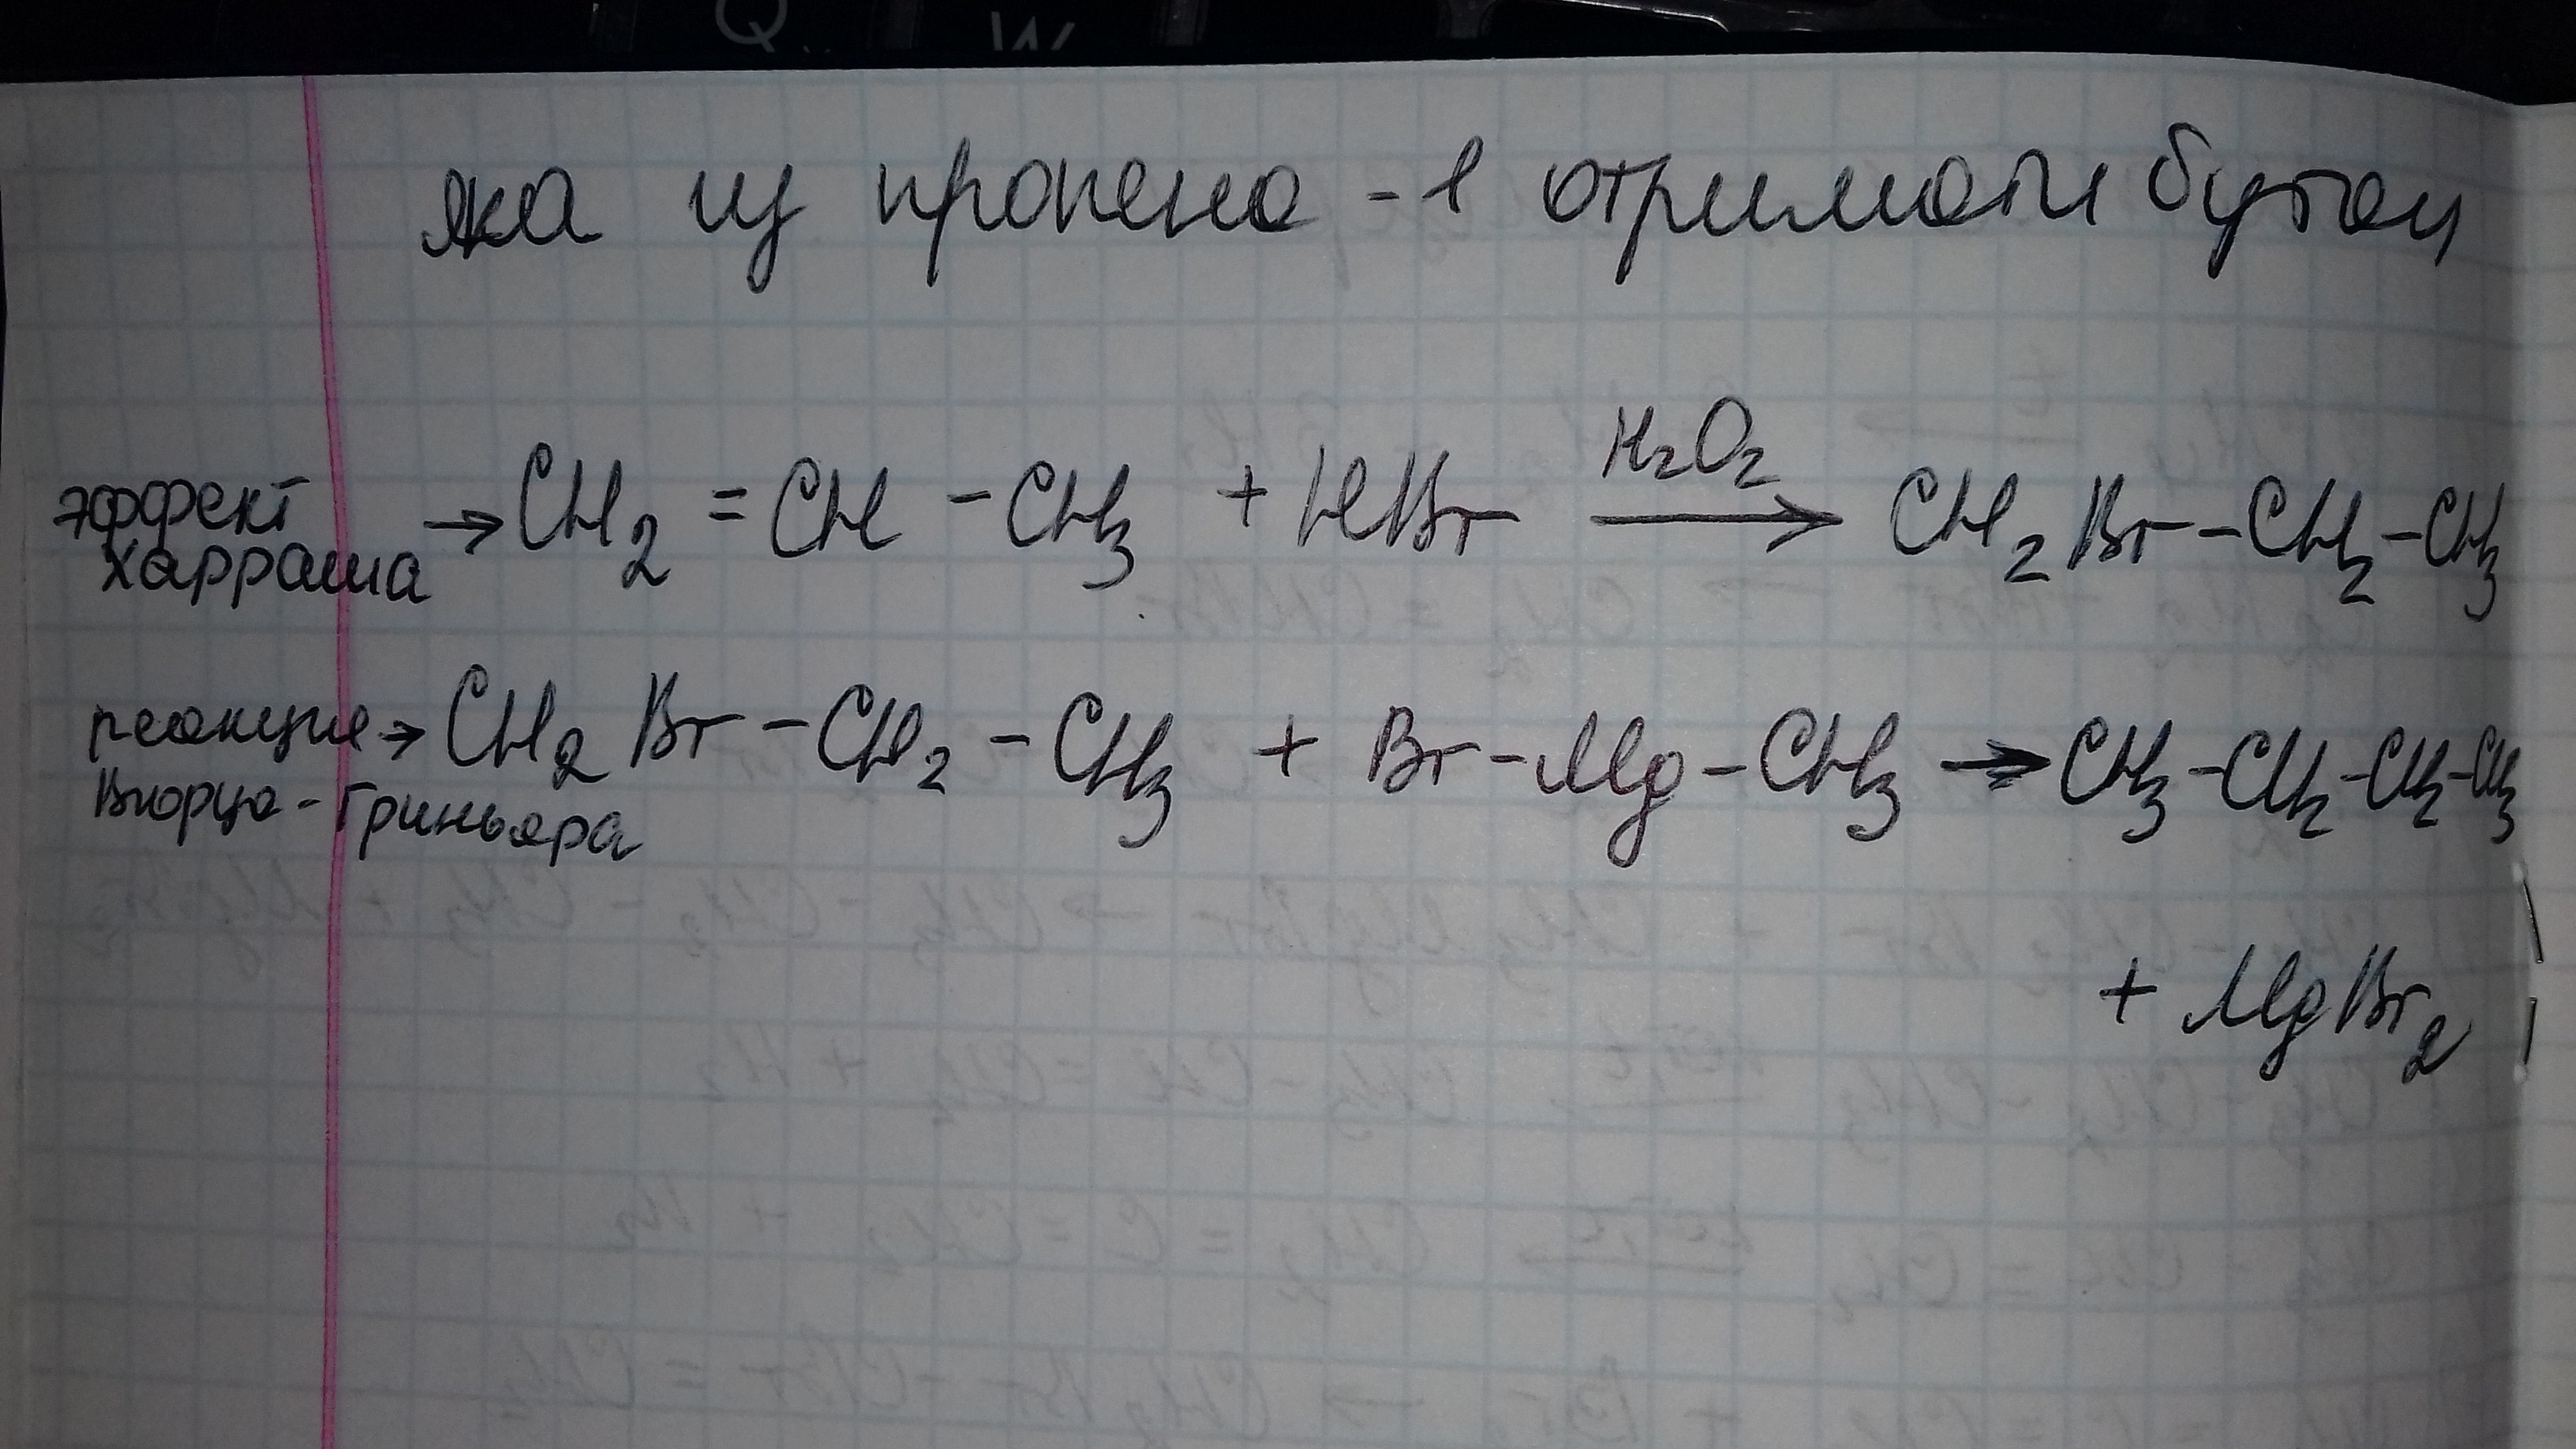 Q W
яка из пропена - 1 отримати бутан
эффект Харраша → CH₂ = CH - CH₃ + HBr H₂O₂ → CH₂Br - CH₂ - CH₃
реакция Вюрца - Гриньяра → CH₂Br - CH₂ - CH₃ + Br - Mg - CH₃ → CH₃ - CH₂ - CH₂ - CH₃
+ MgBr₂